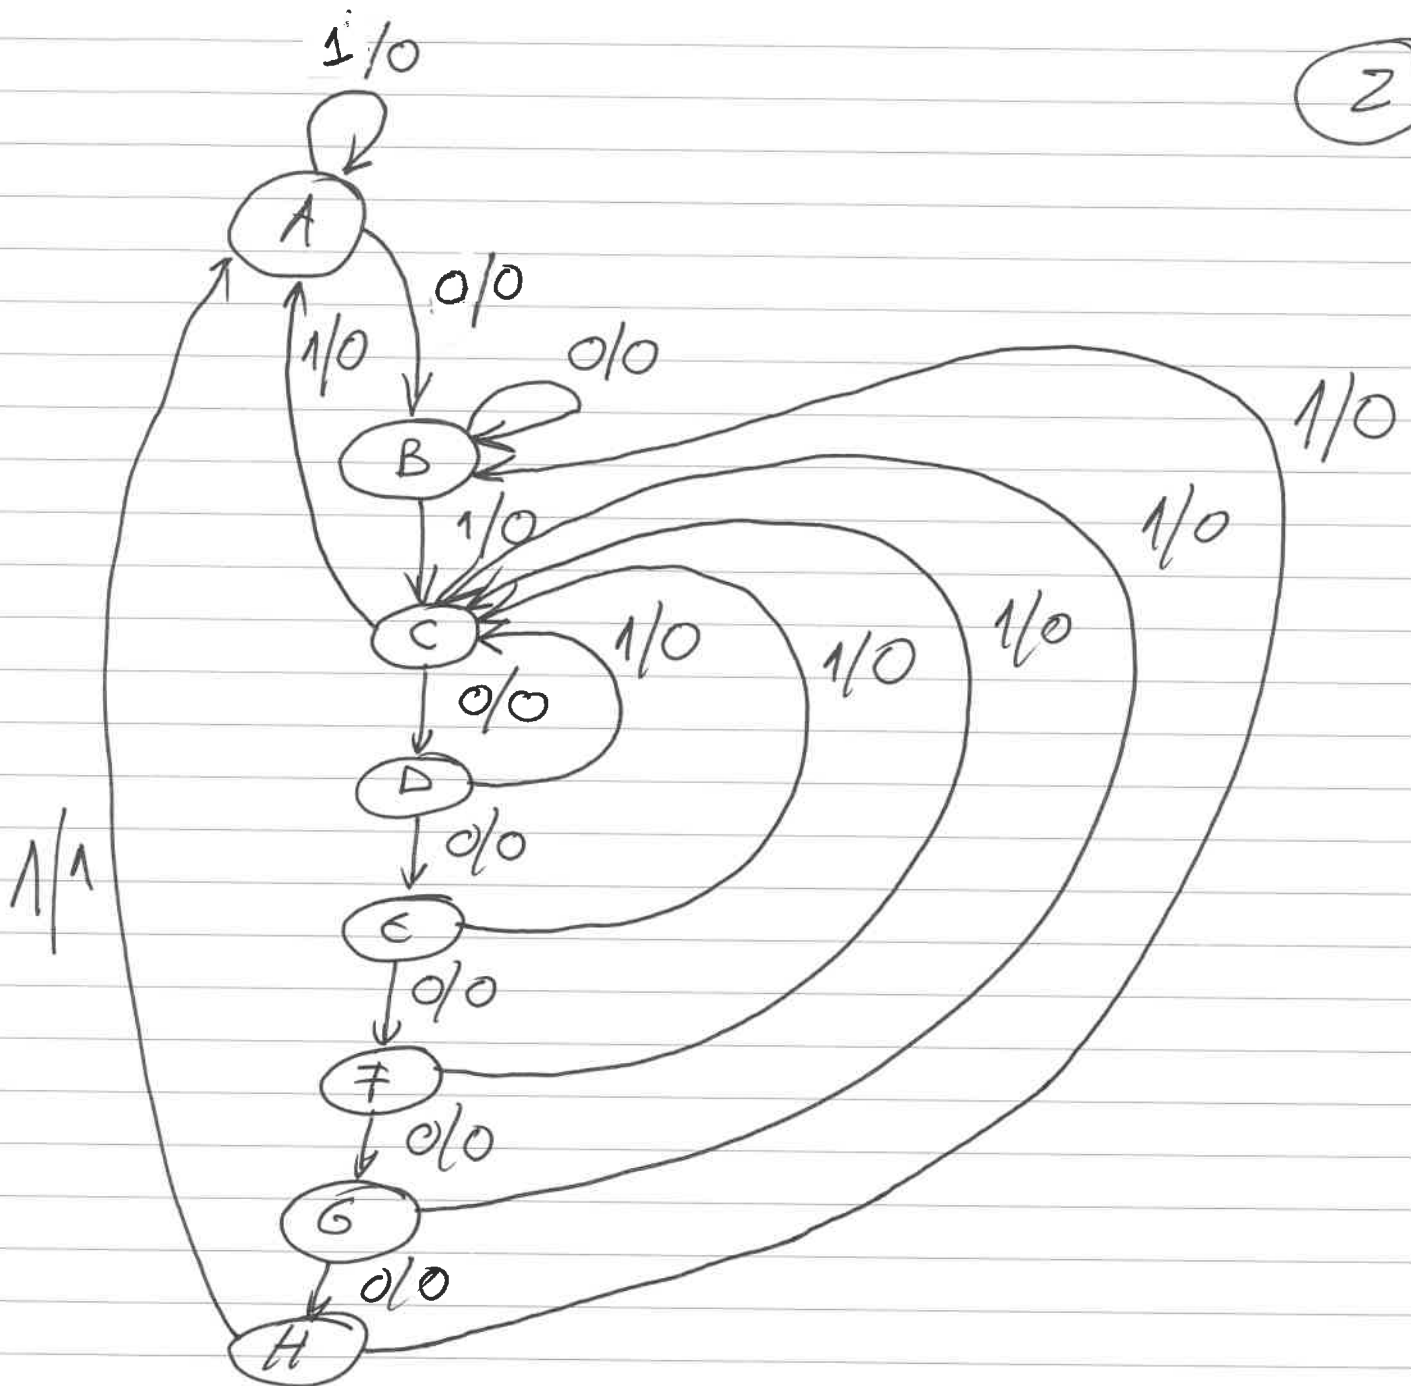 1/0
2
A
0/0
1/0
0/0
1/0
B
1/0
1/0
C
1/0
1/0
1/0
0/0
D
0/0
1/1
E
0/0
F
0/0
G
0/0
H